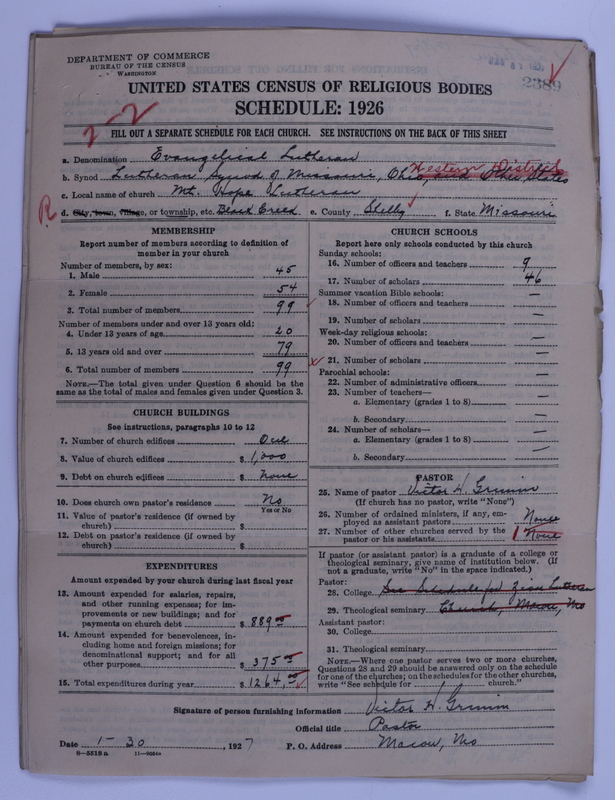 DEPARTMENT OF COMMERCE
BUREAU OF THE CENSUS
WASHINGTON
2389
UNITED STATES CENSUS OF RELIGIOUS BODIES
SCHEDULE: 1926
2-2
FILL OUT A SEPARATE SCHEDULE FOR EACH CHURCH. SEE INSTRUCTIONS ON THE BACK OF THIS SHEET
a. Denomination Evangelical Lutheran
Western District
b. Synod Lutheran Synod of Missouri, Ohio, and Other States
c. Local name of church Mt. Hope Lutheran
R
d. City, town, village, or township, etc. Black Creek e. County Shelby f. State Missouri
MEMBERSHIP
Report number of members according to definition of
member in your church
Number of members, by sex:
1. Male 45
2. Female 54
3. Total number of members 99
Number of members under and over 13 years old:
4. Under 13 years of age 20
5. 13 years old and over 79
6. Total number of members 99
NOTE.—The total given under Question 6 should be the
same as the total of males and females given under Question 3.
CHURCH BUILDINGS
See instructions, paragraphs 10 to 12
7. Number of church edifices One
8. Value of church edifices $ 1,000
9. Debt on church edifices $ None
10. Does church own pastor's residence No
Yes or No
11. Value of pastor's residence (if owned by
church) $
12. Debt on pastor's residence (if owned by
church) $
EXPENDITURES
Amount expended by your church during last fiscal year
13. Amount expended for salaries, repairs,
and other running expenses; for im-
provements or new buildings; and for
payments on church debt $ 889.00
14. Amount expended for benevolences, in-
cluding home and foreign missions; for
denominational support; and for all
other purposes $ 375.00
15. Total expenditures during year $ 1264.00
CHURCH SCHOOLS
Report here only schools conducted by this church
Sunday schools:
16. Number of officers and teachers 9
17. Number of scholars 46
Summer vacation Bible schools:
18. Number of officers and teachers —
19. Number of scholars —
Week-day religious schools:
20. Number of officers and teachers —
21. Number of scholars —
Parochial schools:
22. Number of administrative officers —
23. Number of teachers—
a. Elementary (grades 1 to 8) —
b. Secondary —
24. Number of scholars—
a. Elementary (grades 1 to 8) —
b. Secondary —
PASTOR
25. Name of pastor Victor H. Grimm
(If church has no pastor, write "None")
26. Number of ordained ministers, if any, em-
ployed as assistant pastors None
27. Number of other churches served by the
pastor or his assistants 1 None
If pastor (or assistant pastor) is a graduate of a college or
theological seminary, give name of institution below. (If
not a graduate, write "No" in the space indicated.)
Pastor:
28. College See Schedule for Zion Lutheran
29. Theological seminary Church, Macon, Mo
Assistant pastor:
30. College
31. Theological seminary
NOTE.—Where one pastor serves two or more churches,
Questions 28 and 29 should be answered only on the schedule
for one of the churches; on the schedules for the other churches,
write "See schedule for church."
Signature of person furnishing information Victor H. Grimm
Official title Pastor
Date 1-30, 1927 P. O. Address Macon, Mo
8—5518a 11—9054